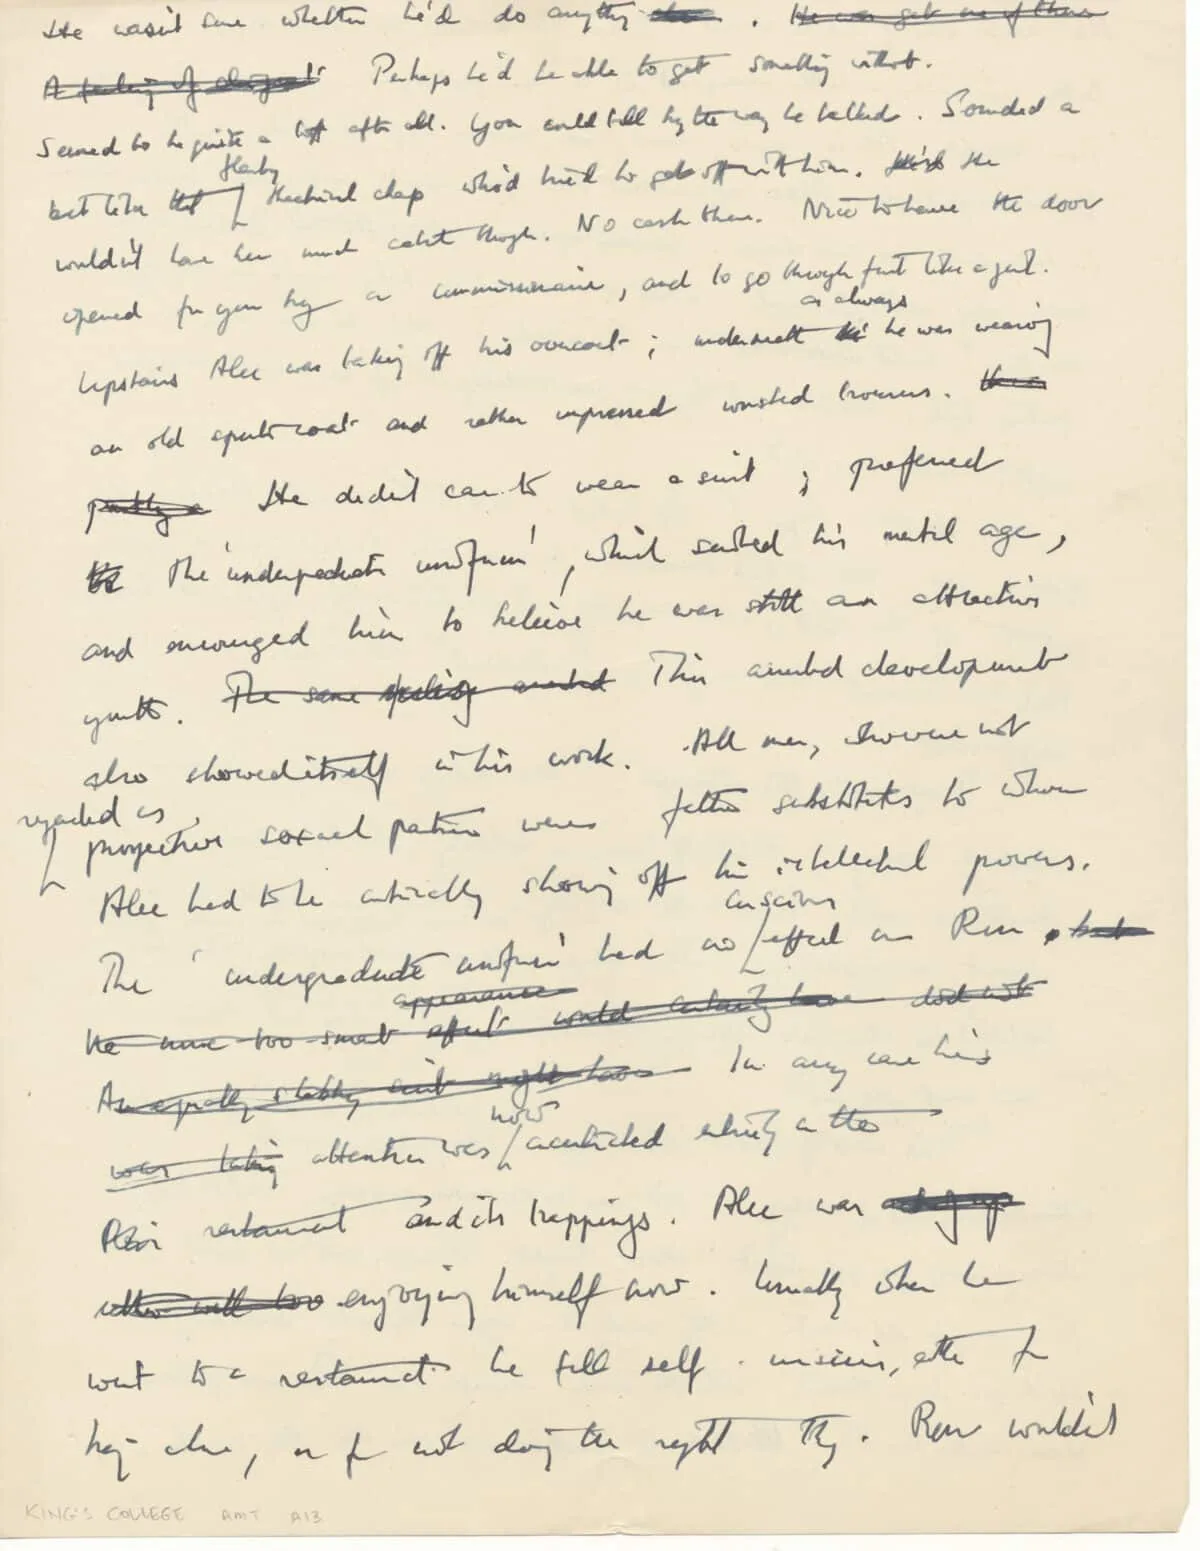 He wasn't sure whether he'd do anything . He was
A feeling of Perhaps he'd be able to get something without.
Seemed to be quite a toff after all. You could tell by the way he talked. Sounded a
bit like that chap who'd tried to get off with him. He
wouldn't have him much catch though. No cash there. Nice to have the door
opened for you by a commissionaire, and to go through first like a
as always
Upstairs Alec was taking off his overcoat; underneath he was wearing
an old sports coat and rather unpressed worsted trousers.
partly a He didn't care to wear a suit ; preferred
the 'undergraduate uniform', which suited his mental age,
and encouraged him to believe he was still an attractive
youth. The same arrested This arrested development
also showed itself in his work. All men, who were not
regarded as
prospective sexual partners were father substitutes to whom
Alec had to be showing off his intellectual powers.
conscious
The 'undergraduate uniform' had no effect on Ron , but
appearance
He was too smart effect would certainly have did not
An equally shabby suit might have In any case his
now
was taking attention was concentrated entirely on the
restaurant and its trappings. Alec was
rather well too enjoying himself now. Usually when he
went to a restaurant he felt self-conscious, either for
being alone, or for not doing the right thing. Ron wouldn't
KING'S COLLEGE AMT A13